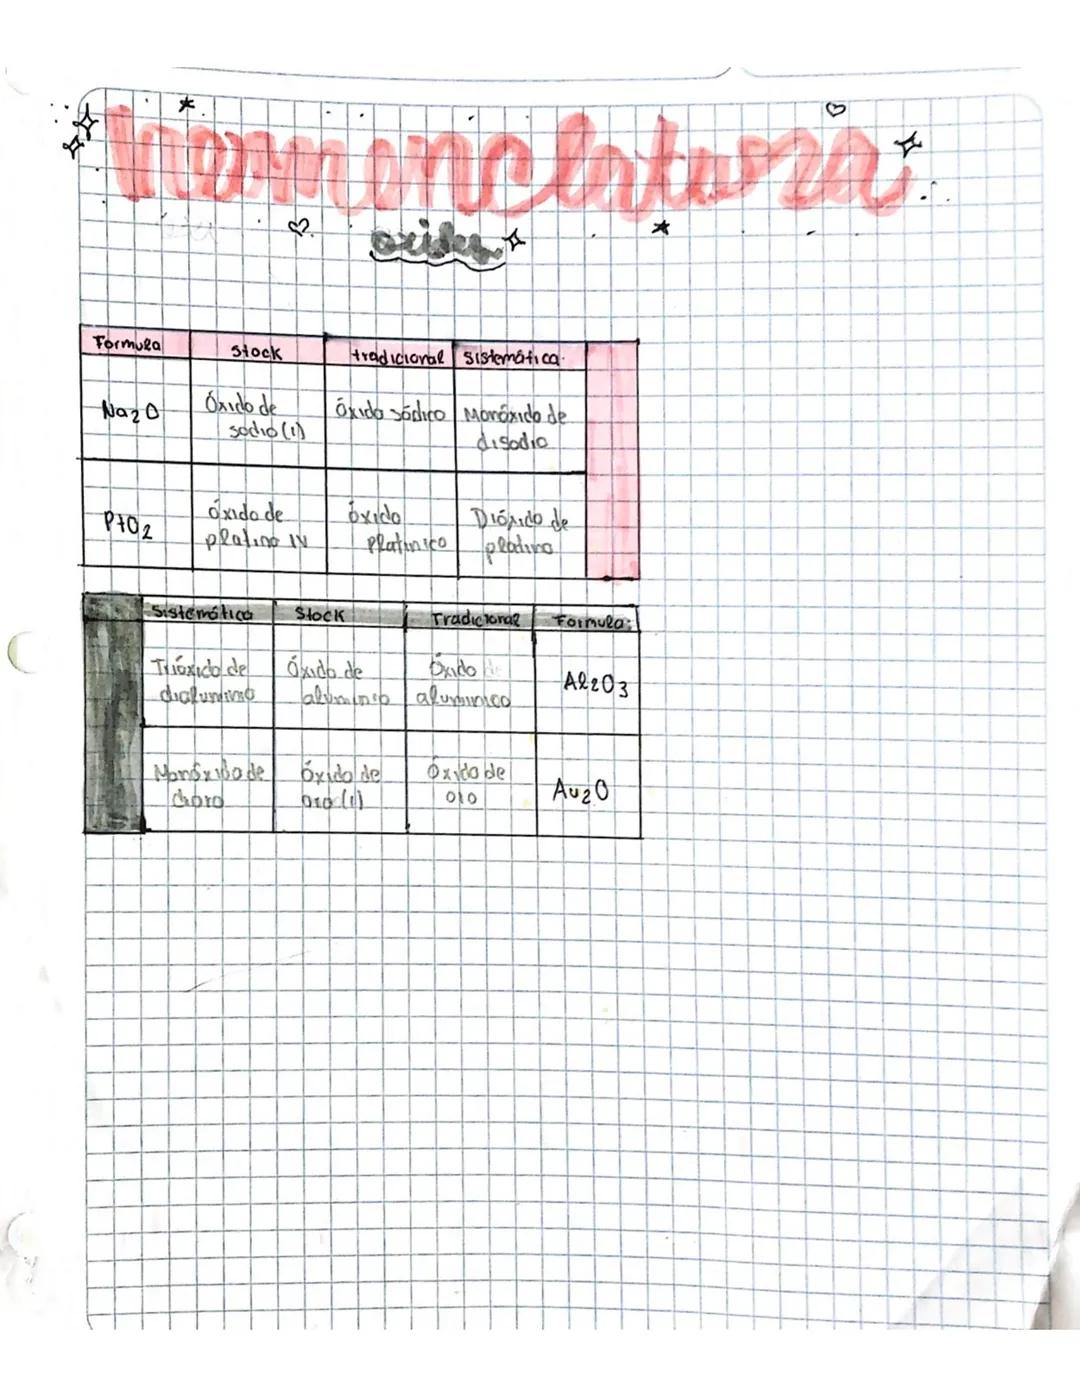 nomenclatura
oxides
Formula Stock tradicional sistemática.
Na2O Óxido de sodio (1) óxido sódico Monóxido de disodio
PtO2 óxido de platino IV óxido platinico Dióxido de platino
Sistemática Stock Tradicional Formula:
Trióxido de dialuminio Óxido de aluminio Óxido de aluminico Al2O3
Monóxido de dioro óxido de oro (1) óxido de oro Au2O